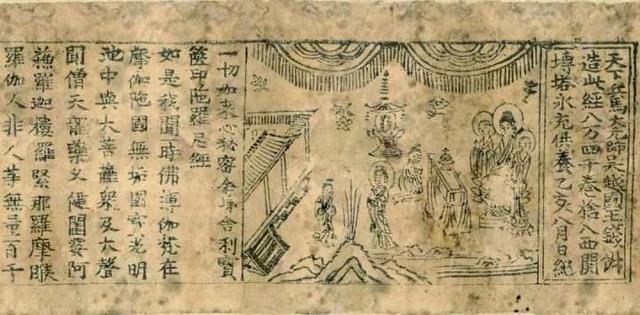 天下兵馬大元帥吳越國王錢俶
造此經八万四千卷捨入西關
塼塔永充供養乙亥八月日紀
一切如來心秘密全身舍利寶
篋印陀羅尼經
如是我聞一時佛薄伽梵在
摩伽陁國無垢園寶光明
池中與大菩薩衆及大聲
聞僧天龍藥叉健闥婆阿
蘇羅迦樓羅緊那羅摩睺
羅伽人非人等無量百千